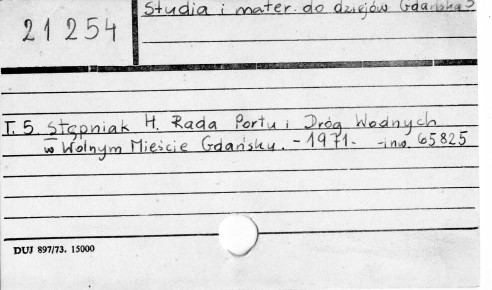 Studia i mater. do dziejów Gdańska
21 254
T. 5. Stępniak H. Rada Portu i Dróg Wodnych
w Wolnym Mieście Gdańsku. - 1971 - - inw. 65825
DUJ 897/73. 15000